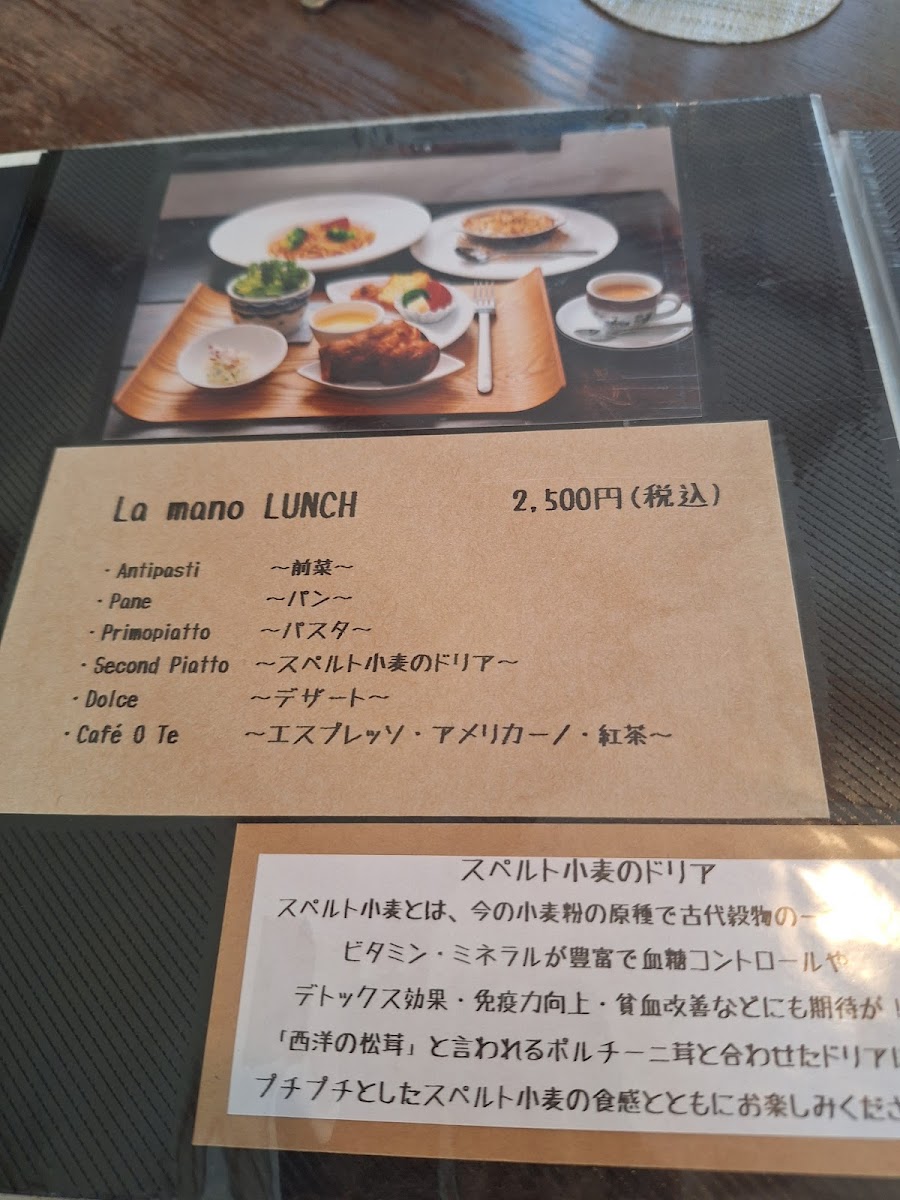 La mano LUNCH 2,500円(税込)
・Antipasti ～前菜～
・Pane ～パン～
・Primopiatto ～パスタ～
・Second Piatto ～スペルト小麦のドリア～
・Dolce ～デザート～
・Café O Te ～エスプレッソ・アメリカーノ・紅茶～
スペルト小麦のドリア
スペルト小麦とは、今の小麦粉の原種で古代穀物の一
ビタミン・ミネラルが豊富で血糖コントロールや
デトックス効果・免疫力向上・貧血改善などにも期待が
「西洋の松茸」と言われるポルチーニ茸と合わせたドリアに
プチプチとしたスペルト小麦の食感とともにお楽しみくださ